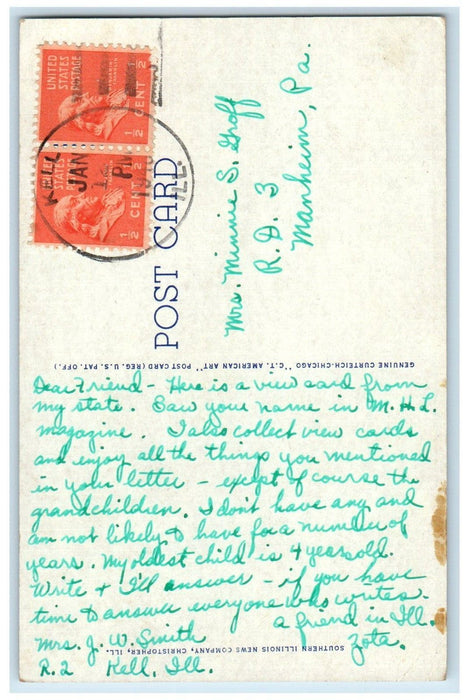 UNITED
STATES
POSTAGE
1/2 CENT 1/2
UNITED
STATES
POSTAGE
1/2 CENT 1/2
KELL
JAN
PM
ILL.
POST CARD
Mrs. Minnie S. Groff
R.D. 3
Manheim, Pa.
GENUINE CURTEICH-CHICAGO "C.T. AMERICAN ART" POST CARD (REG. U.S. PAT. OFF.)
Dear Friend - Here is a view card from
my state. Saw your name in M.H.L.
magazine. I also collect view cards
and enjoy all the things you mentioned
in your letter - except of course the
grandchildren. I don't have any and
am not likely to have for a number of
years. My oldest child is 4 years old.
Write + I'll answer - if you have
time to answer everyone who writes.
a friend in Ill.
Mrs. J. W. Smith
Zota.
R.2 Kell, Ill.
SOUTHERN ILLINOIS NEWS COMPANY, CHRISTOPHER, ILL.